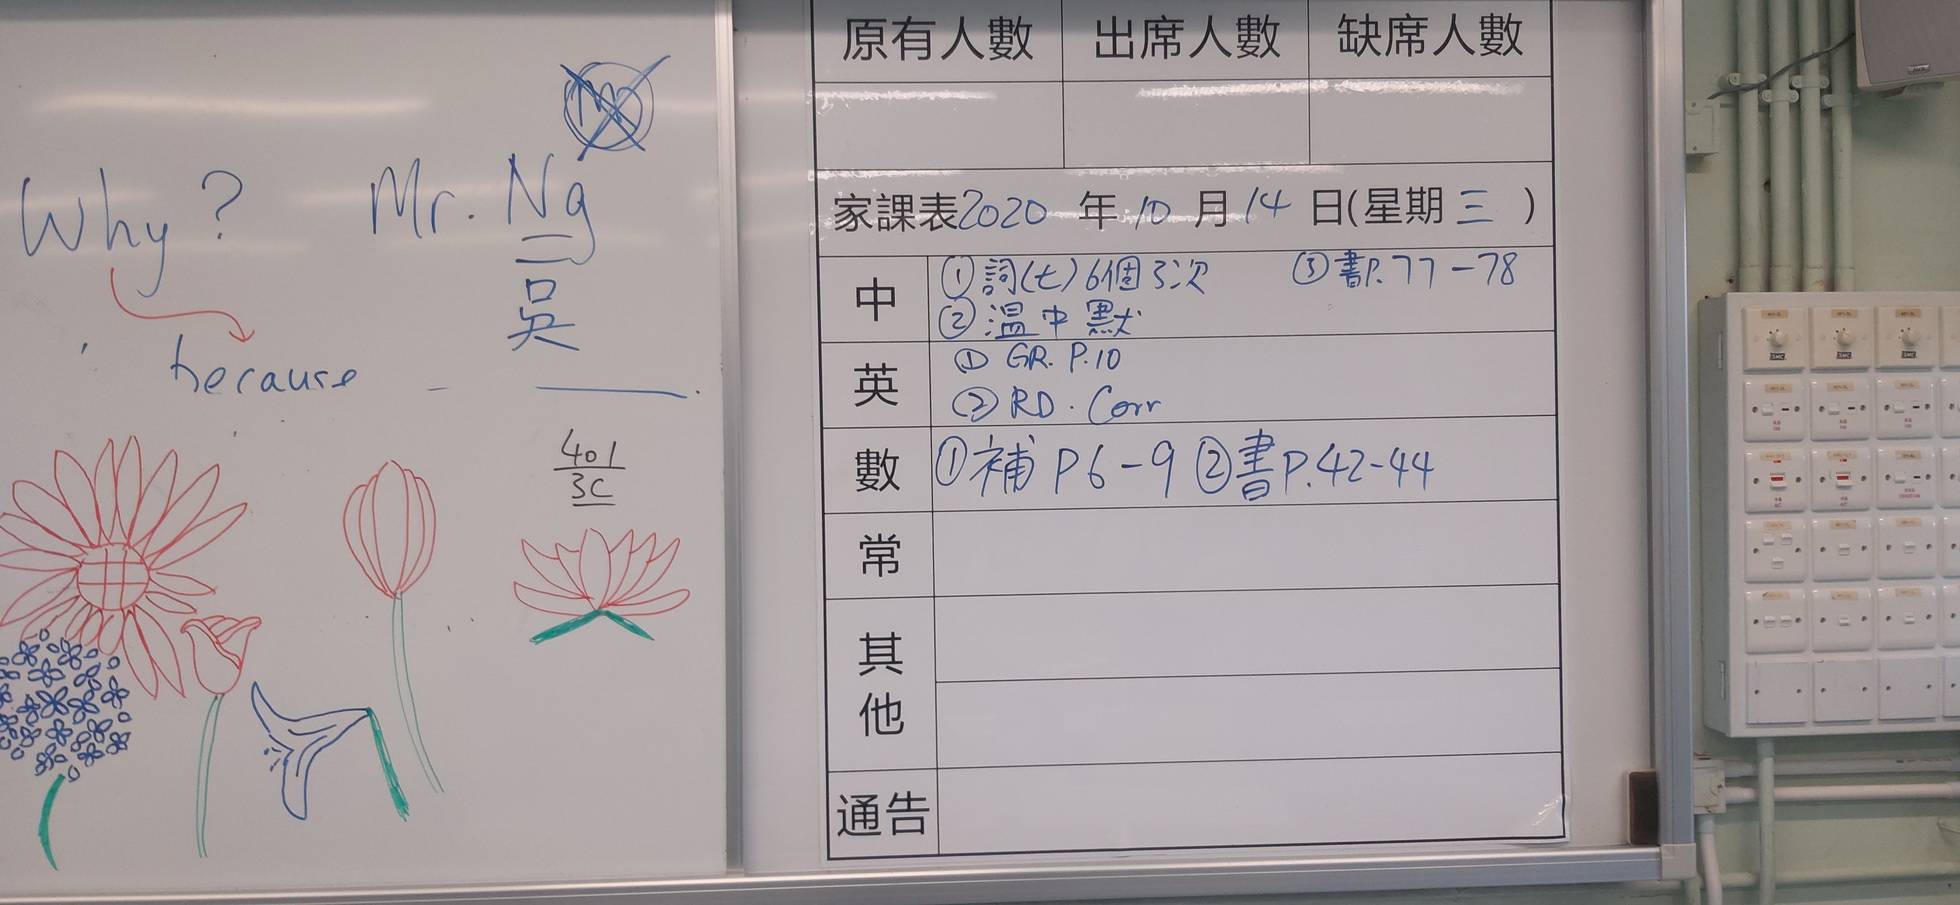 Why? Mr. Ng
吳
because - ____.
401
3C
原有人數 出席人數 缺席人數
家課表2020年10月14日(星期三)
中 ①詞(七)6個3次 ③書P.77-78
②溫中默
英 ① GR. P.10
② RD. Corr
數 ①補 P6-9 ②書P.42-44
常
其他
通告